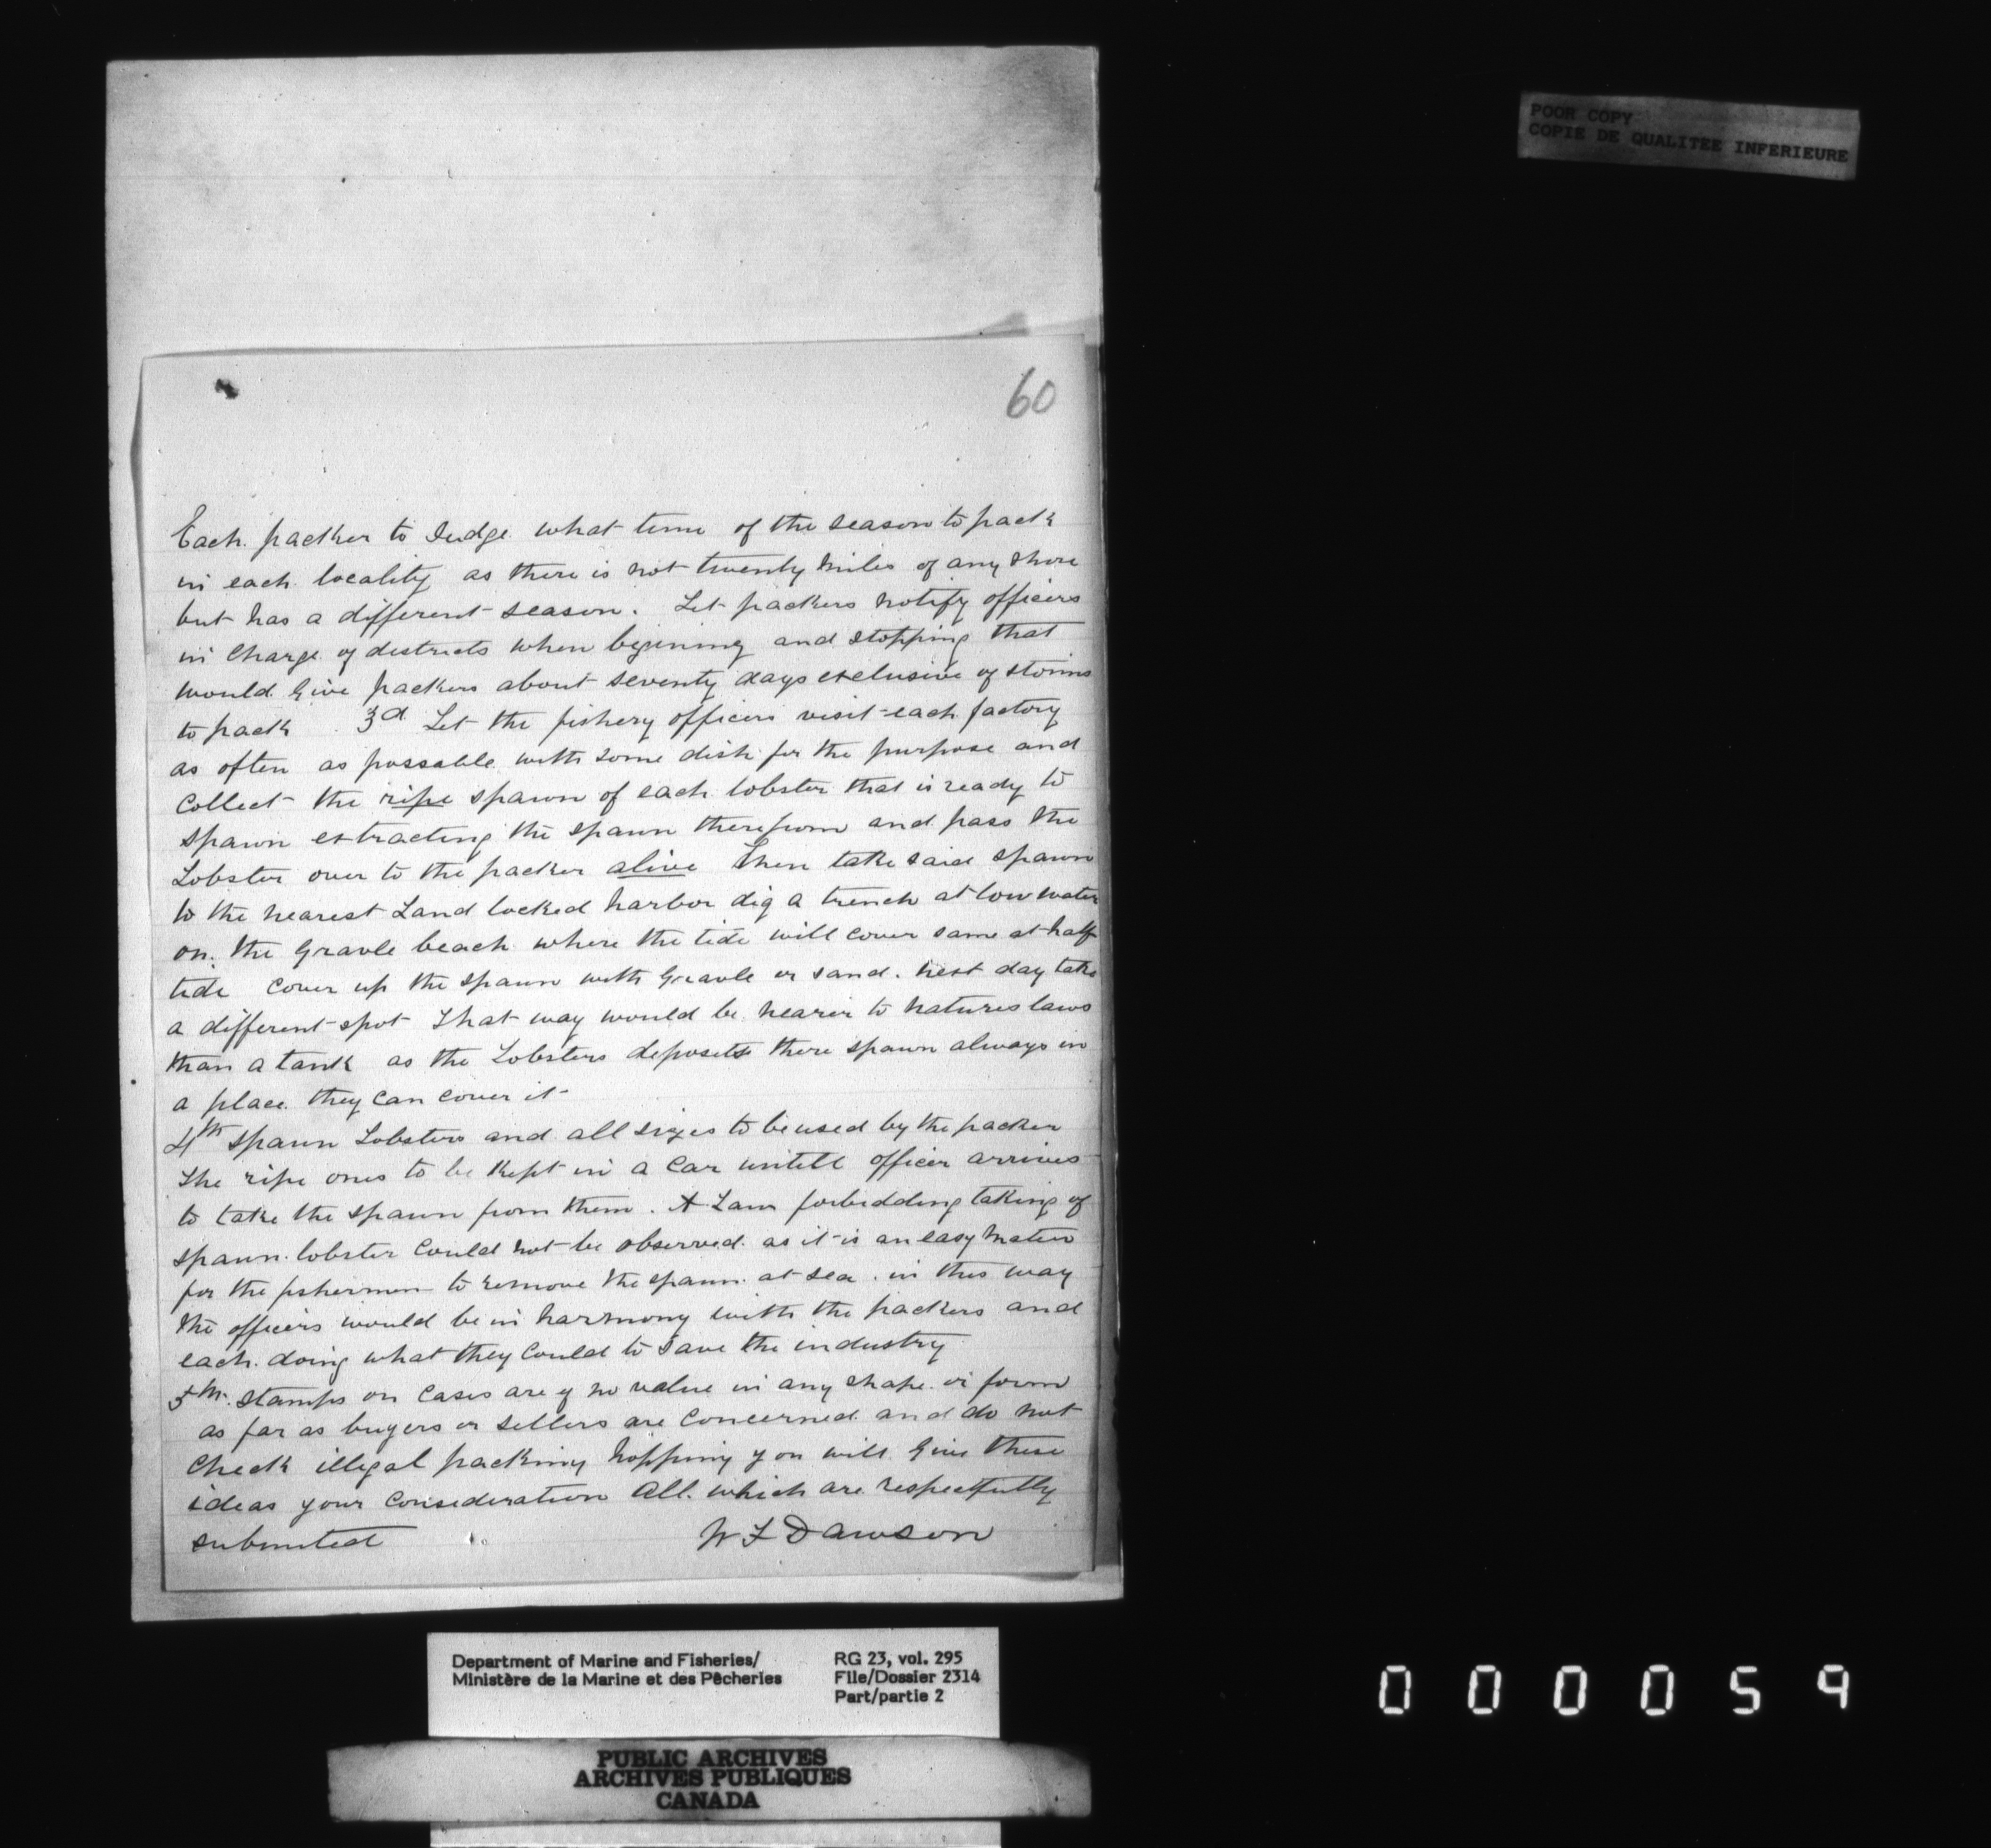 POOR COPY
COPIE DE QUALITEE INFERIEURE
60
Each packer to Judge what time of the season to pack
in each locality as there is not twenty miles of any shore
but has a different season. Let packers notify officers
in charge of districts when begining and stopping that
would give packers about seventy days exclusive of storms
to pack . 3d Let the fishery officers visit each factory
as often as possable with some dish for the purpose and
collect the ripe spawn of each lobster that is ready to
spawn extracting the spawn therefrom and pass the
Lobster over to the packer alive then take said spawn
to the nearest Land locked harbor dig a trench at low water
on the Gravle beach where the tide will cover same at half
tide cover up the spawn with Gravle or sand. next day take
a different spot That way would be nearer to natures laws
than a tank as the Lobsters deposets there spawn always in
a place they can cover it
4th spawn Lobsters and all sizes to be used by the packer
The ripe ones to be kept in a Car untill officer arrives
to take the spawn from them. A Law forbidding taking of
spawn lobster could not be observed as it is an easy mater
for the fishermen to remove the spawn at sea. in this way
the officers would be in harmony with the packers and
each doing what they could to save the industry
5th. Stamps on Cases are of no value in any shape or form
as far as buyers or sellers are concerned and do not
check illegal packing hopping you will give these
ideas your consideration All which are respectfully
submited W F Dawson
Department of Marine and Fisheries/ RG 23, vol. 295
Ministère de la Marine et des Pêcheries File/Dossier 2314
Part/partie 2
000059
PUBLIC ARCHIVES
ARCHIVES PUBLIQUES
CANADA